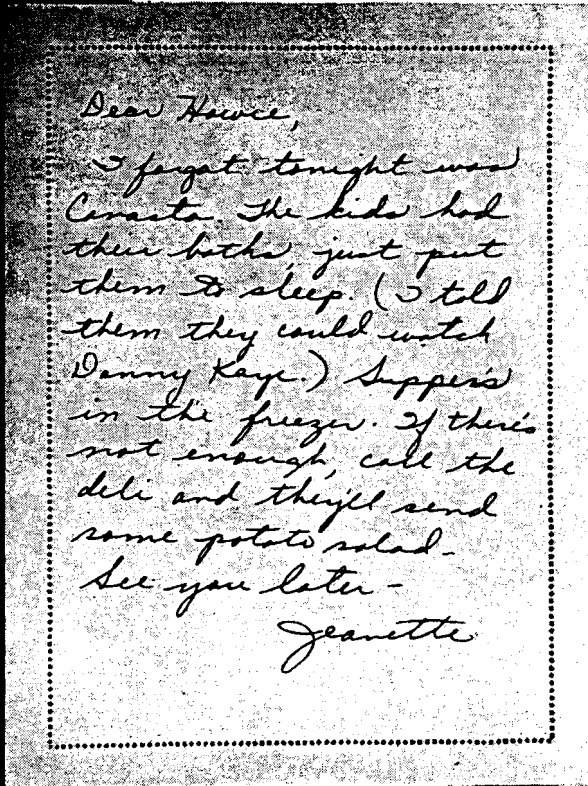 Dear Howie,
I forgot tonight was
Canasta. The kids had
their baths, just put
them to sleep. (I told
them they could watch
Danny Kaye.) Supper's
in the freezer. If there's
not enough, call the
deli and they'll send
some potato salad-
See you later-
Jeanette